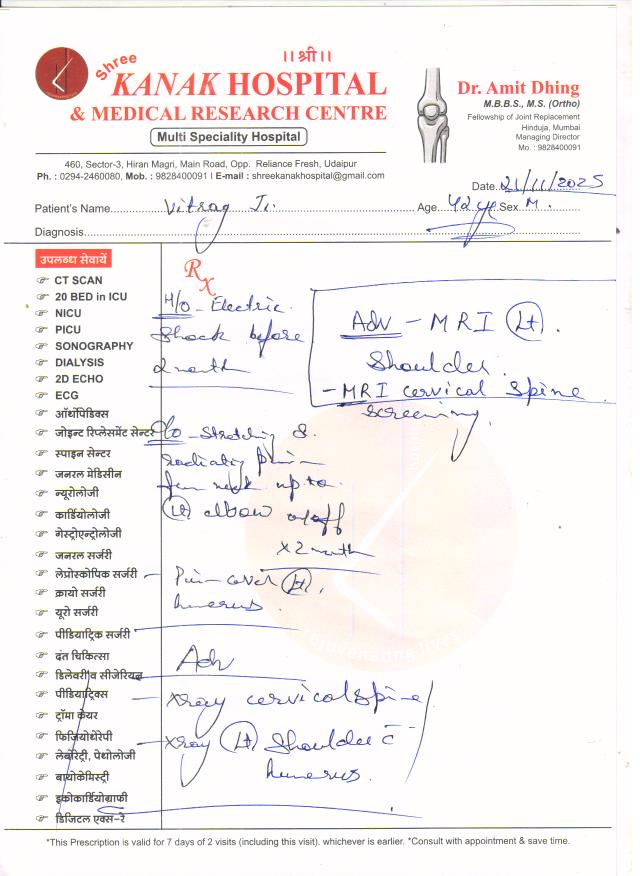 ।।श्री।।
Shree
KANAK HOSPITAL
& MEDICAL RESEARCH CENTRE
Multi Speciality Hospital
460, Sector-3, Hiran Magri, Main Road, Opp. Reliance Fresh, Udaipur
Ph. : 0294-2460080, Mob. : 9828400091 I E-mail : shreekanakhospital@gmail.com
Dr. Amit Dhing
M.B.B.S., M.S. (Ortho)
Fellowship of Joint Replacement
Hinduja, Mumbai
Managing Director
Mo. : 9828400091
Date 21/11/2025
Patient's Name Vitrag Ji. Age 42 yr Sex M.
Diagnosis
उपलब्ध सेवायें
CT SCAN
20 BED in ICU
NICU
PICU
SONOGRAPHY
DIALYSIS
2D ECHO
ECG
ऑर्थोपेडिक्स
जोइन्ट रिप्लेसमेंट सेन्टर
स्पाइन सेन्टर
जनरल मेडिसीन
न्यूरोलोजी
कार्डियोलोजी
गेस्ट्रोएन्ट्रोलोजी
जनरल सर्जरी
लेप्रोस्कोपिक सर्जरी
क्रायो सर्जरी
यूरो सर्जरी
पीडियाट्रिक सर्जरी
दंत चिकित्सा
डिलेवरी व सीजेरियन
पीडियाट्रिक्स
ट्रॉमा केयर
फिजियोथेरेपी
लेबोरेट्री, पेथोलोजी
बायोकेमिस्ट्री
इकोकार्डियोग्राफी
डिजिटल एक्स-रे
Rx
H/o - Electric
Shock before
2 month
C/o - Stretching &
radiating pain
from neck up to
Lt elbow on/off
x 2 month
Pain over Lt.
humerus.
Adv
- Xray cervical spine
- Xray Lt Shoulder c̄
humerus.
Adv - MRI Lt.
Shoulder
- MRI cervical spine
screening
rejuvenating lives
*This Prescription is valid for 7 days of 2 visits (including this visit). whichever is earlier. *Consult with appointment & save time.